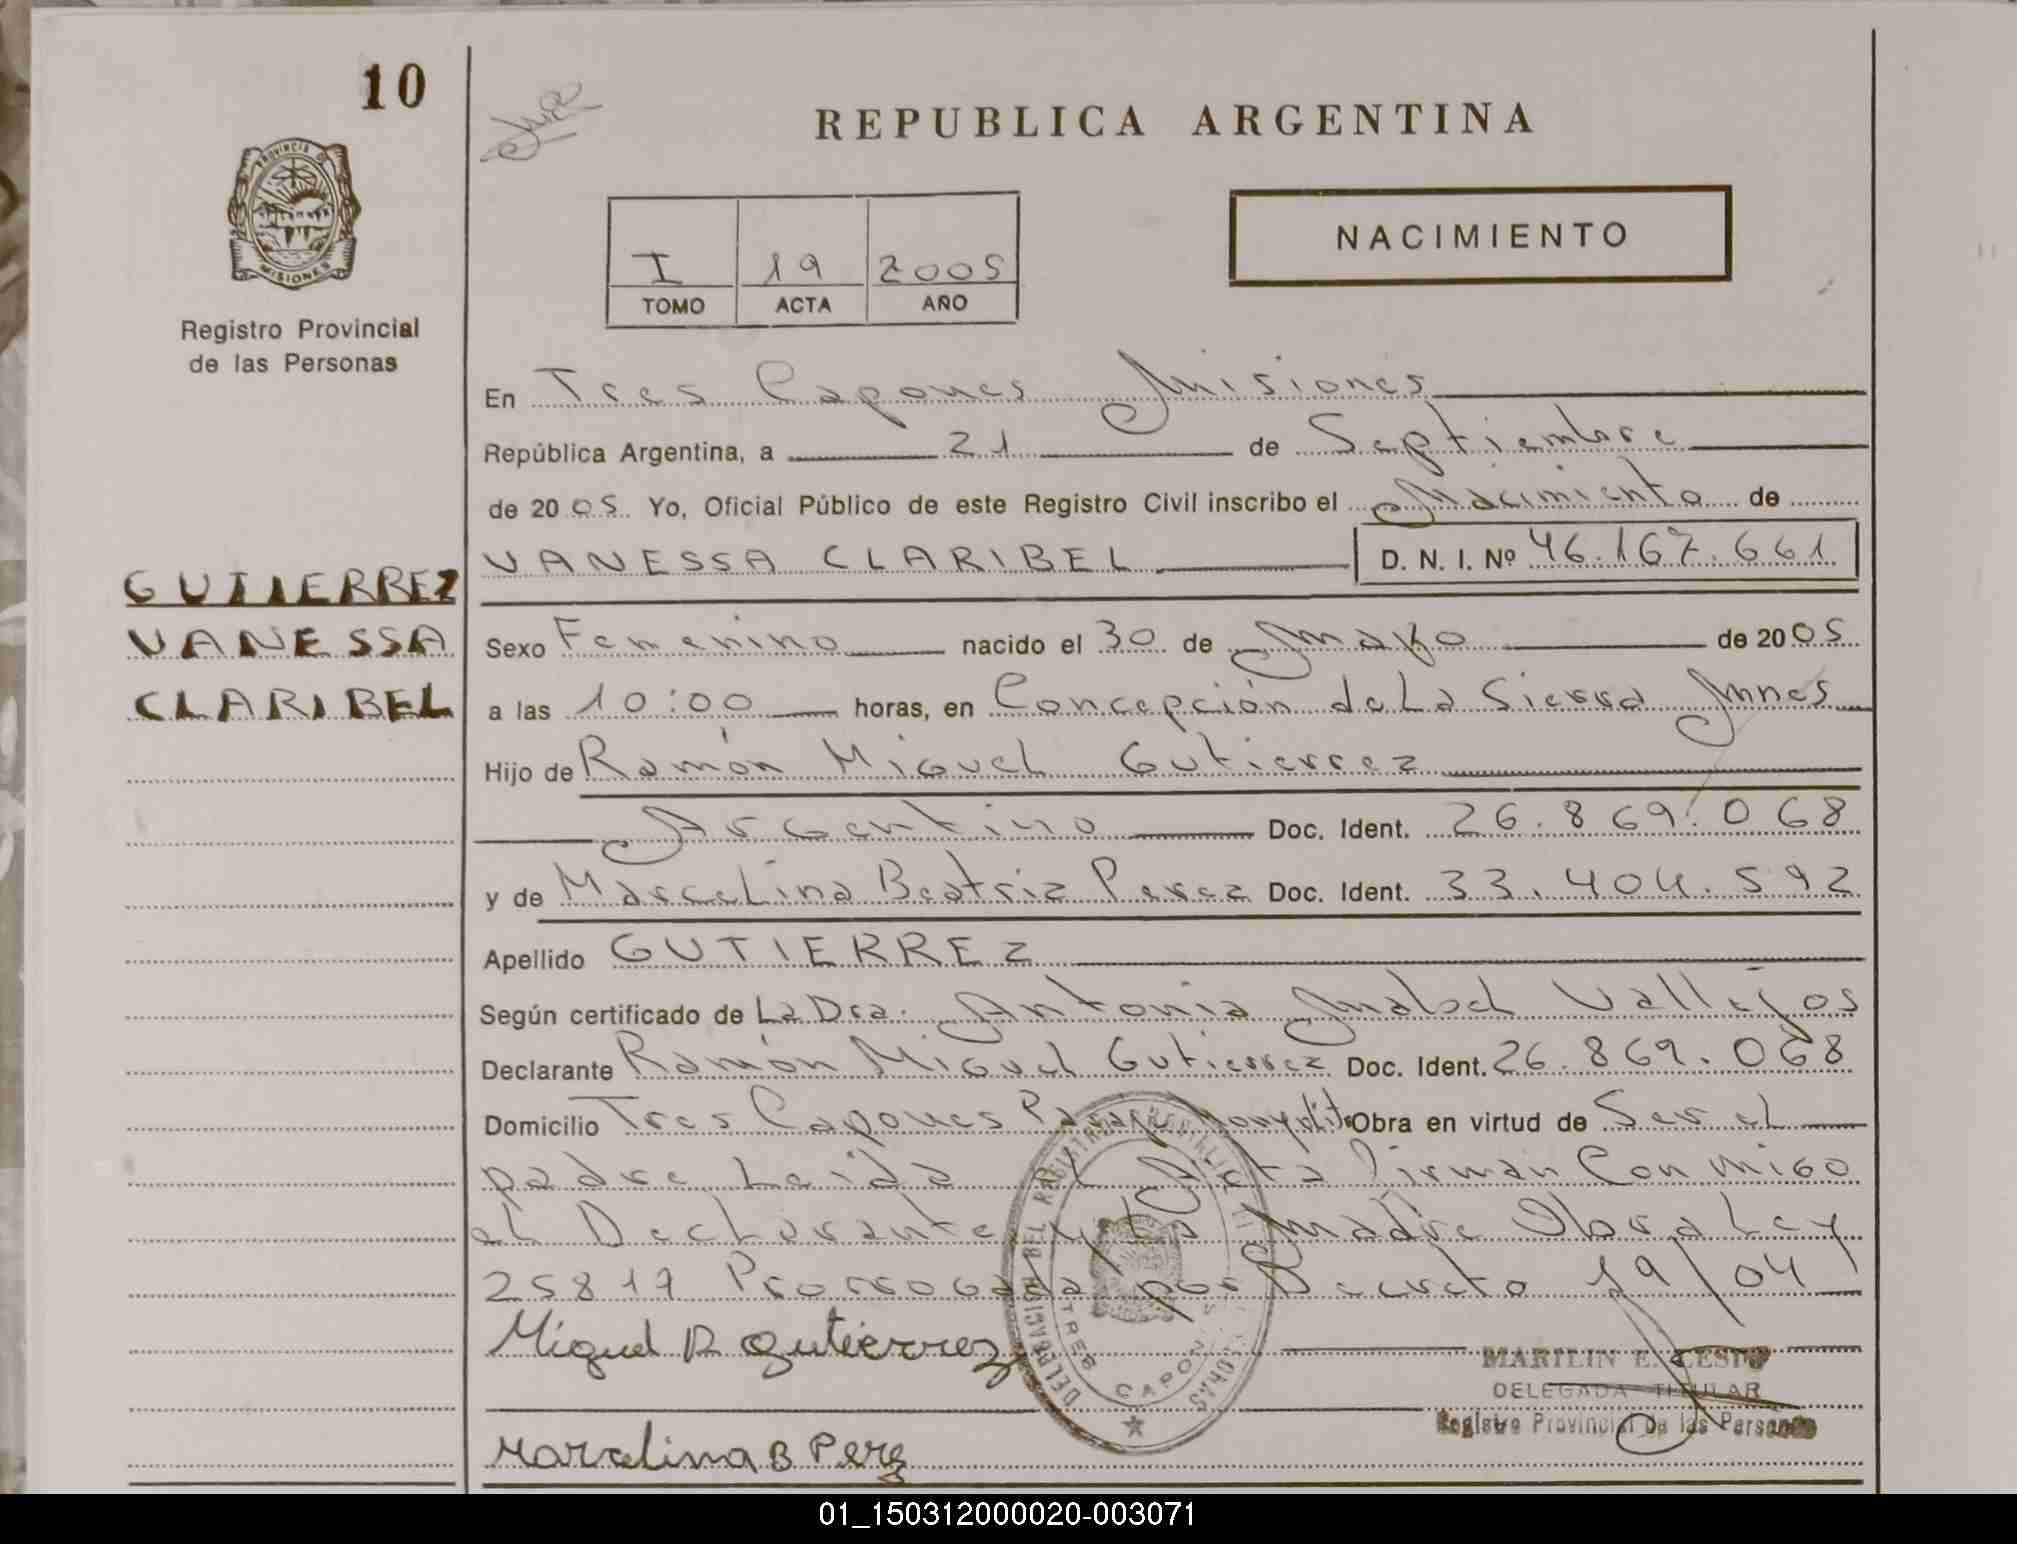 10
REPUBLICA ARGENTINA
PROVINCIA DE
MISIONES
NACIMIENTO
I 19 2005
TOMO ACTA AÑO
Registro Provincial
de las Personas
En Tres Capones Misiones
República Argentina, a 21 de Septiembre
de 2005. Yo, Oficial Público de este Registro Civil inscribo el Nacimiento de
VANESSA CLARIBEL D. N. I. Nº 46.167.661
GUTIERREZ
VANESSA
CLARIBEL
Sexo Femenino nacido el 30 de mayo de 2005
a las 10:00 horas, en Concepción de La Sierra Mnes
Hijo de Ramón Miguel Gutierrez
Argentino Doc. Ident. 26.869.068
y de Marcelina Beatriz Perez Doc. Ident. 33.404.592
Apellido GUTIERREZ
Según certificado de La Dra. Antonia Mabel Vallejos
Declarante Ramón Miguel Gutierrez Doc. Ident. 26.869.068
Domicilio Tres Capones Obra en virtud de Ser el
padre Leida el Acta firman Conmigo
el Declarante y la madre Obra Ley
25819 Prorrogada por Decreto 19/04
Miguel R Gutierrez
MARILIN E.
DELEGADA TITULAR
Registro Provincial de las Personas
Marcelina B Perez
TRES CAPONES
01_150312000020-003071